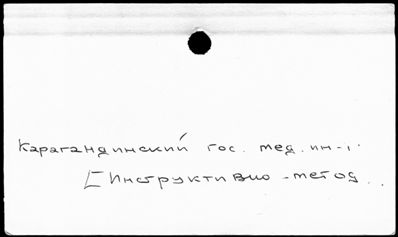 Карагандинский гос. мед. ин-т.
[Инструктивно-метод...